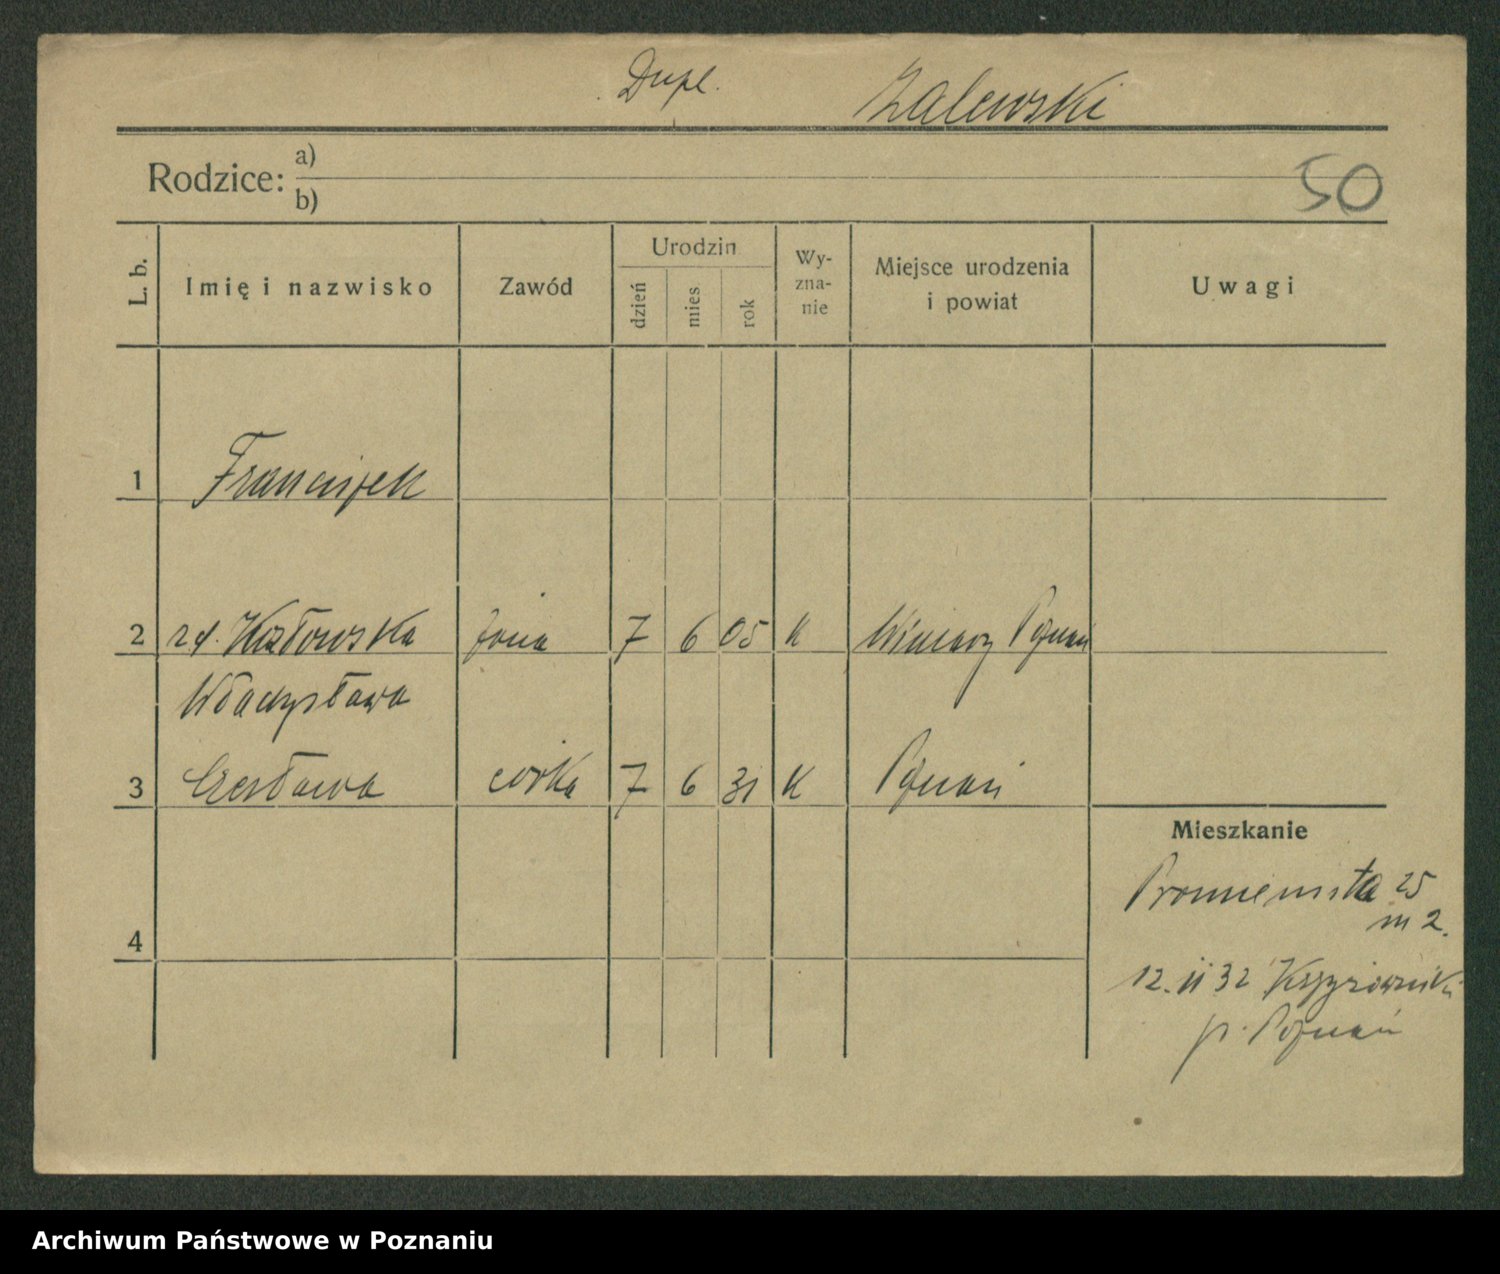 Dupl. Zalewski
Rodzice: a)
b)
50
L. b. Imię i nazwisko Zawód Urodzin dzień mies rok Wy-zna-nie Miejsce urodzenia i powiat Uwagi
1 Franciszek
2 zd. Kozłowska żona 7 6 05 k Winiary Poznań
Władysława
3 Czesława córka 7 6 31 k Poznań
Mieszkanie
Promienista 25
m 2.
4
12. II 32 Krzyżowniki
p. Poznań
Archiwum Państwowe w Poznaniu